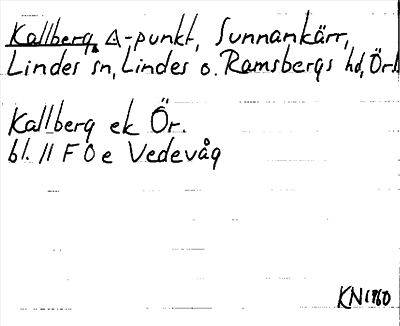 Kallberg, △-punkt, Sunnankärr,
Lindes sn, Lindes o. Ramsbergs hd, Örl
Kallberg ek Ör.
bl. 11 F 0 e Vedevåg
KN1960